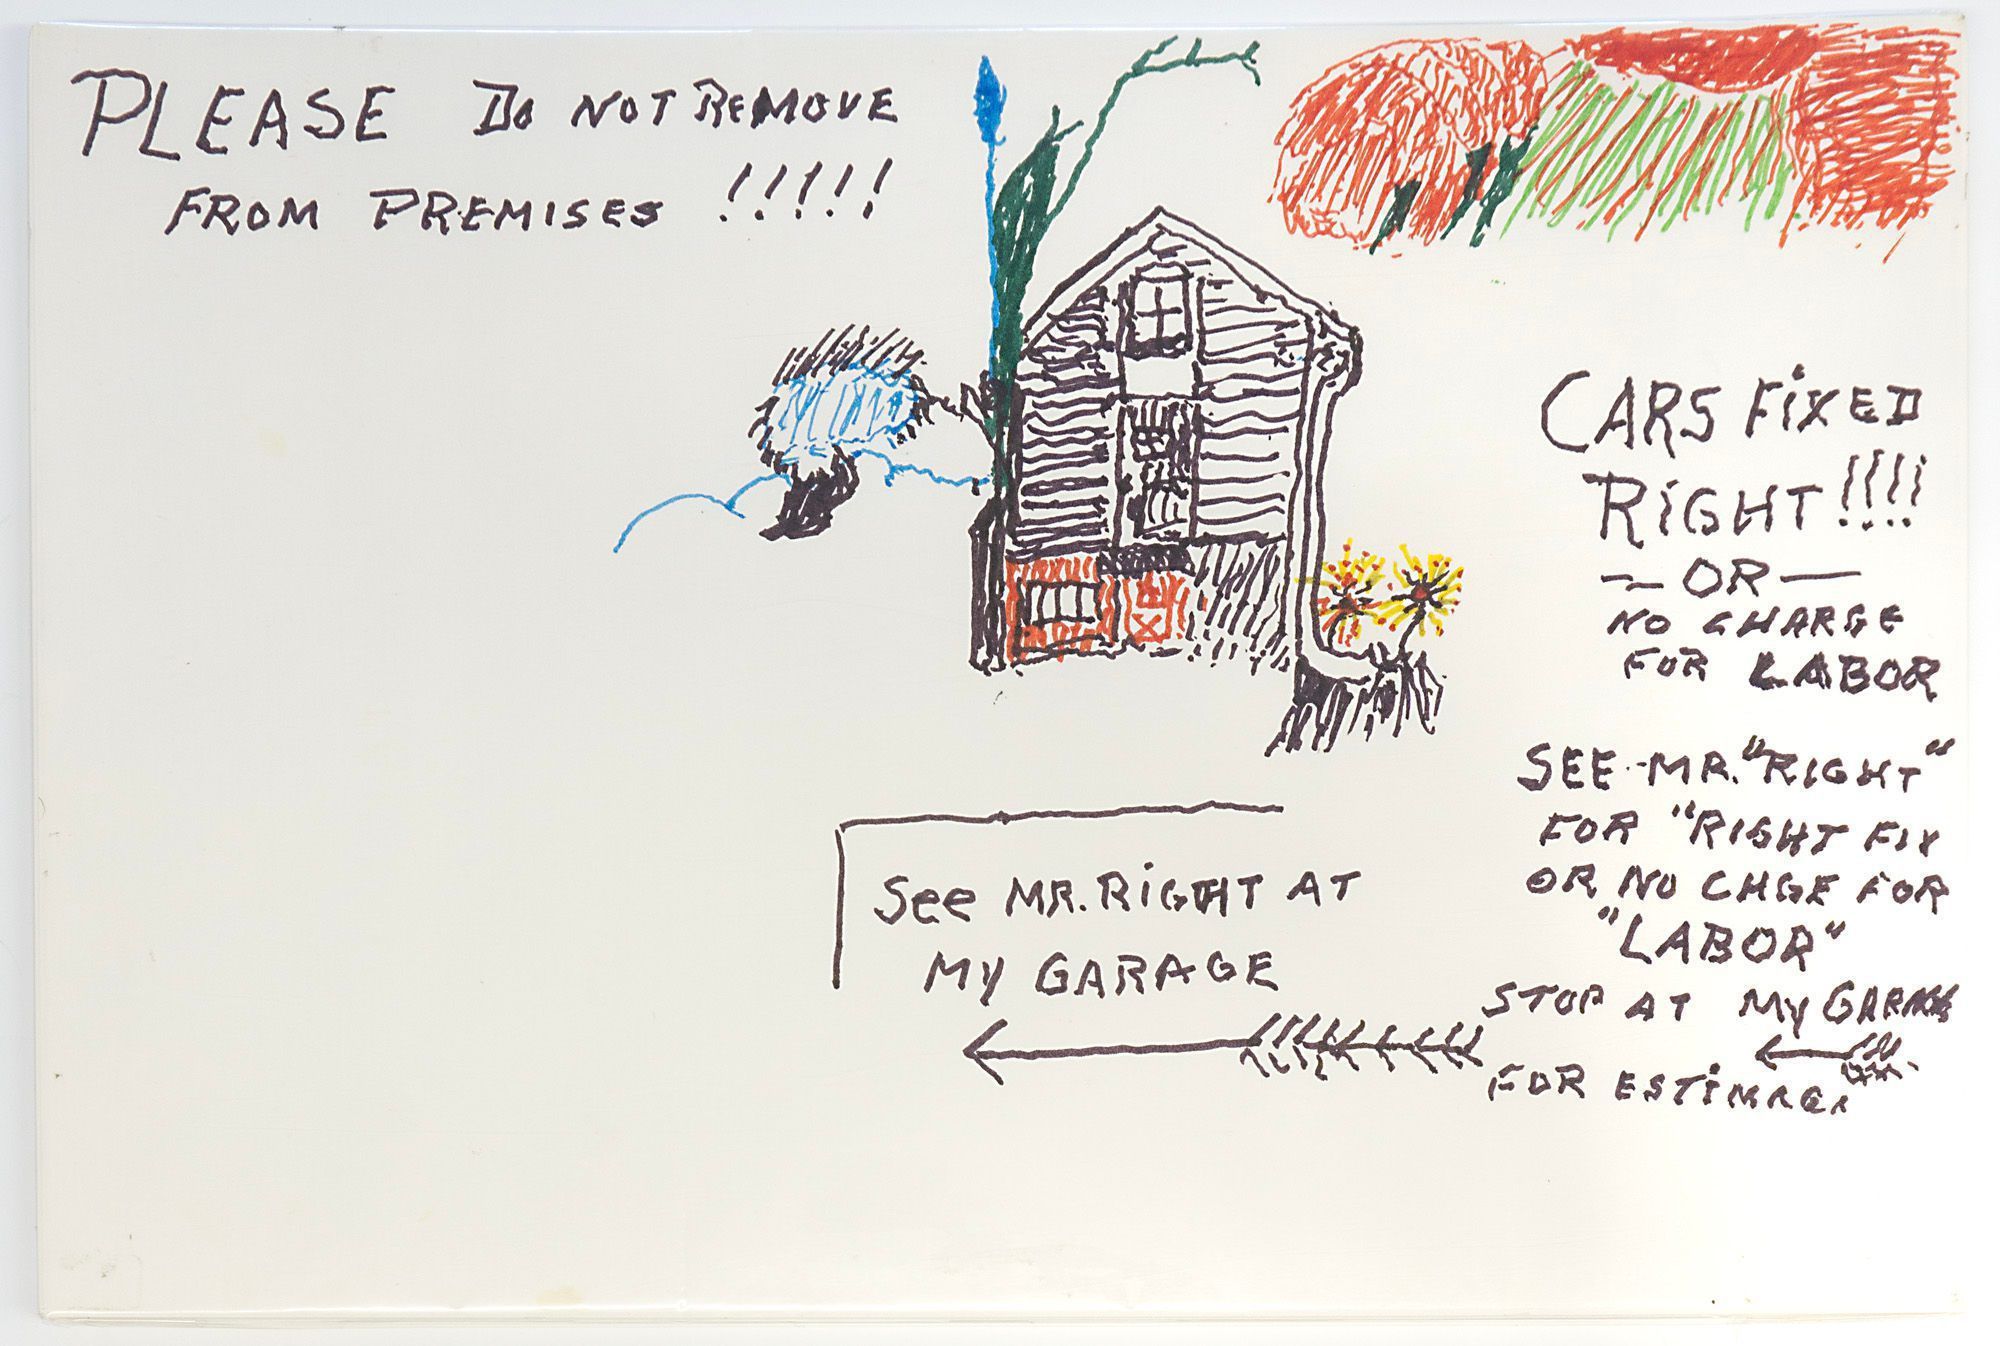 PLEASE Do NOT REMOVE
FROM PREMISES !!!!!
CARS FiXED
RiGHT !!!!
— OR —
NO CHARGE
FOR LABOR
SEE MR. "RIGHT"
FOR "RIGHT FIX
OR NO CHGE FOR
"LABOR"
STOP AT MY GARAGE
FOR
See MR. RiGHT AT
MY GARAGE